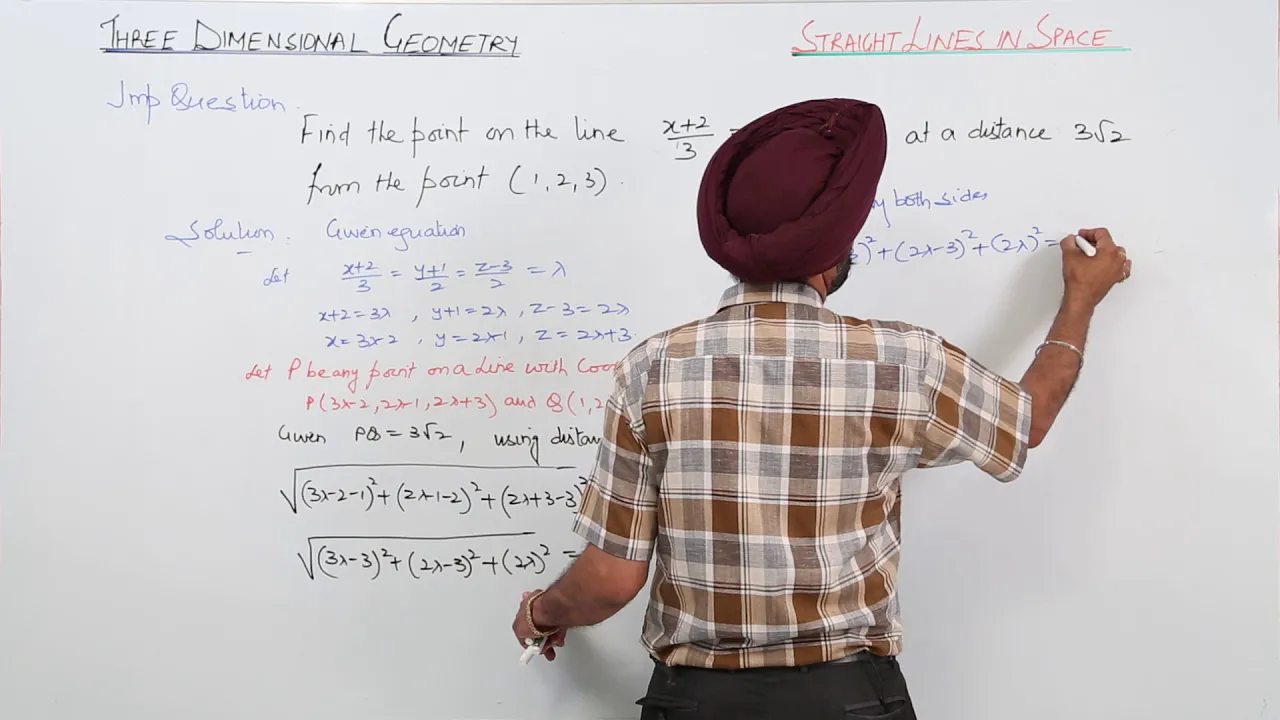 THREE DIMENSIONAL GEOMETRY
STRAIGHT LINES IN SPACE
Imp Question.
Find the point on the line x+2/3 = at a distance 3√2
from the point (1,2,3).
Solution. Given equation
Let x+2/3 = y+1/2 = z-3/2 = λ
x+2=3λ , y+1=2λ , z-3=2λ
x=3λ-2 , y=2λ-1 , z=2λ+3.
Let P be any point on a Line with
P(3λ-2, 2λ-1, 2λ+3) and Q(1,2
Given PQ = 3√2 , using
√(3λ-2-1)²+(2λ-1-2)²+(2λ+3-3)²
√(3λ-3)²+(2λ-3)²+(2λ)² =
both sides
)²+(2λ-3)²+(2λ)²=